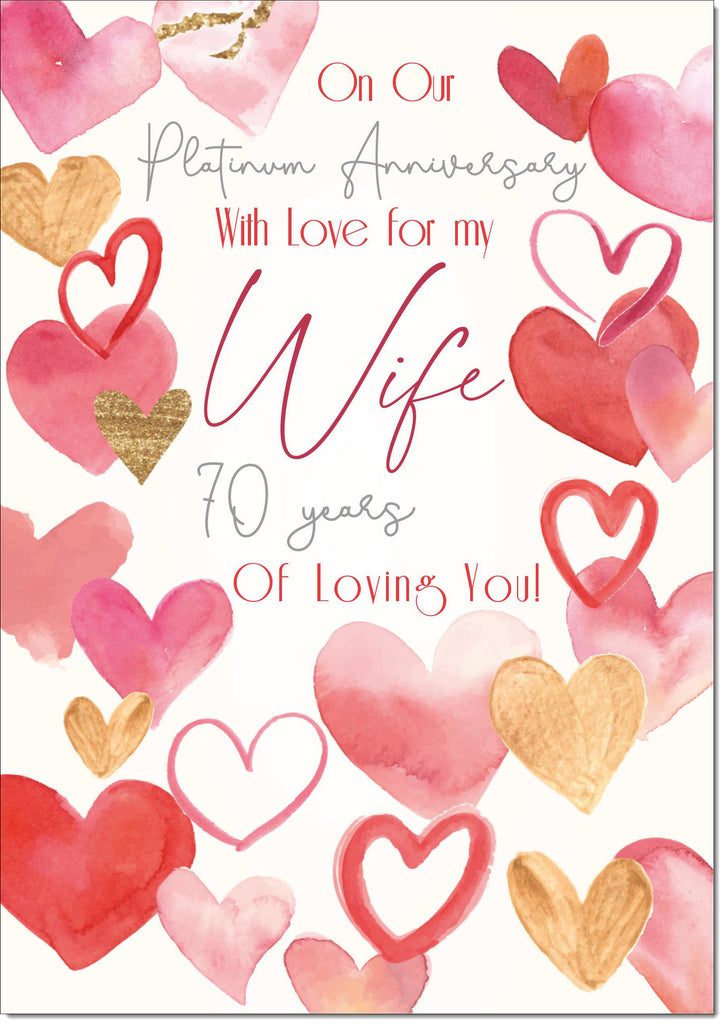 On Our
Platinum Anniversary
With Love for my
Wife
70 years
Of Loving You!